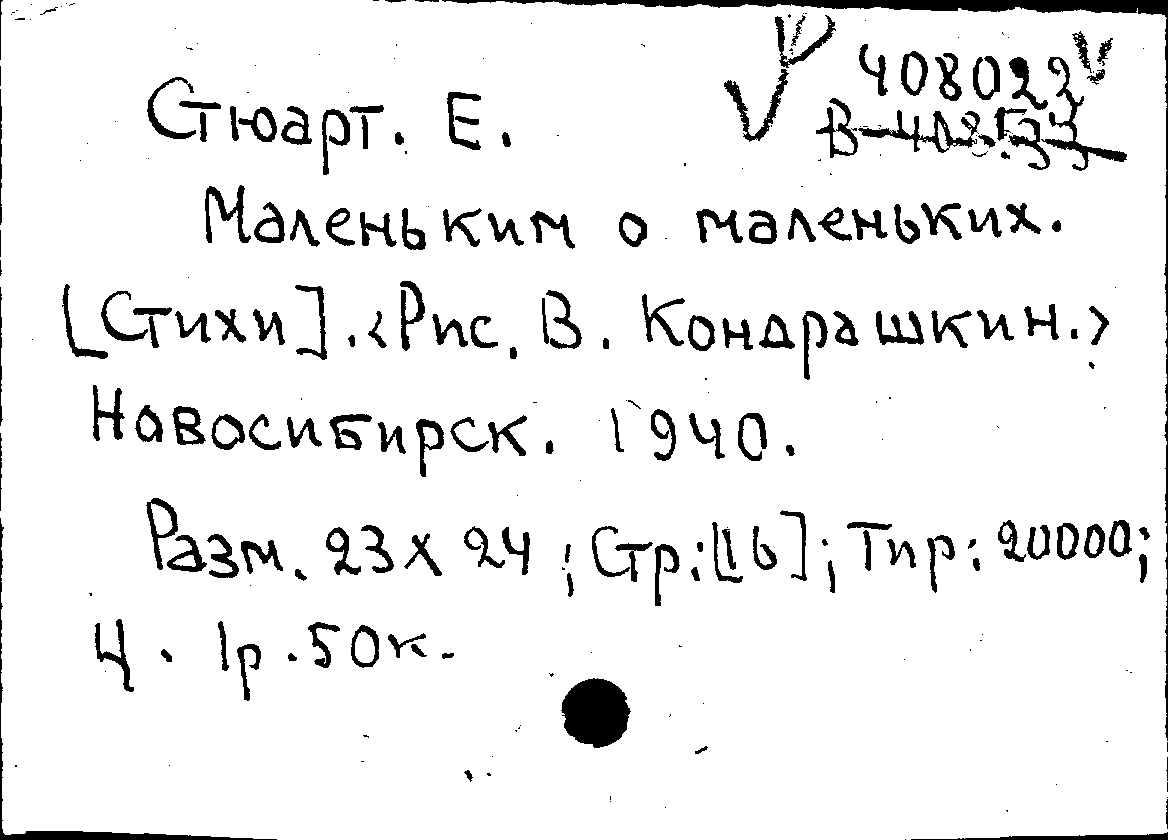 408022
Стюарт. Е.
Маленьким о маленьких.
[Стихи]. <Рис. В. Кондрашкин.>
Новосибирск. 1940.
Разм. 23 х 24 ; Стр:[16]; Тир: 20000;
Ц. 1р. 50к.